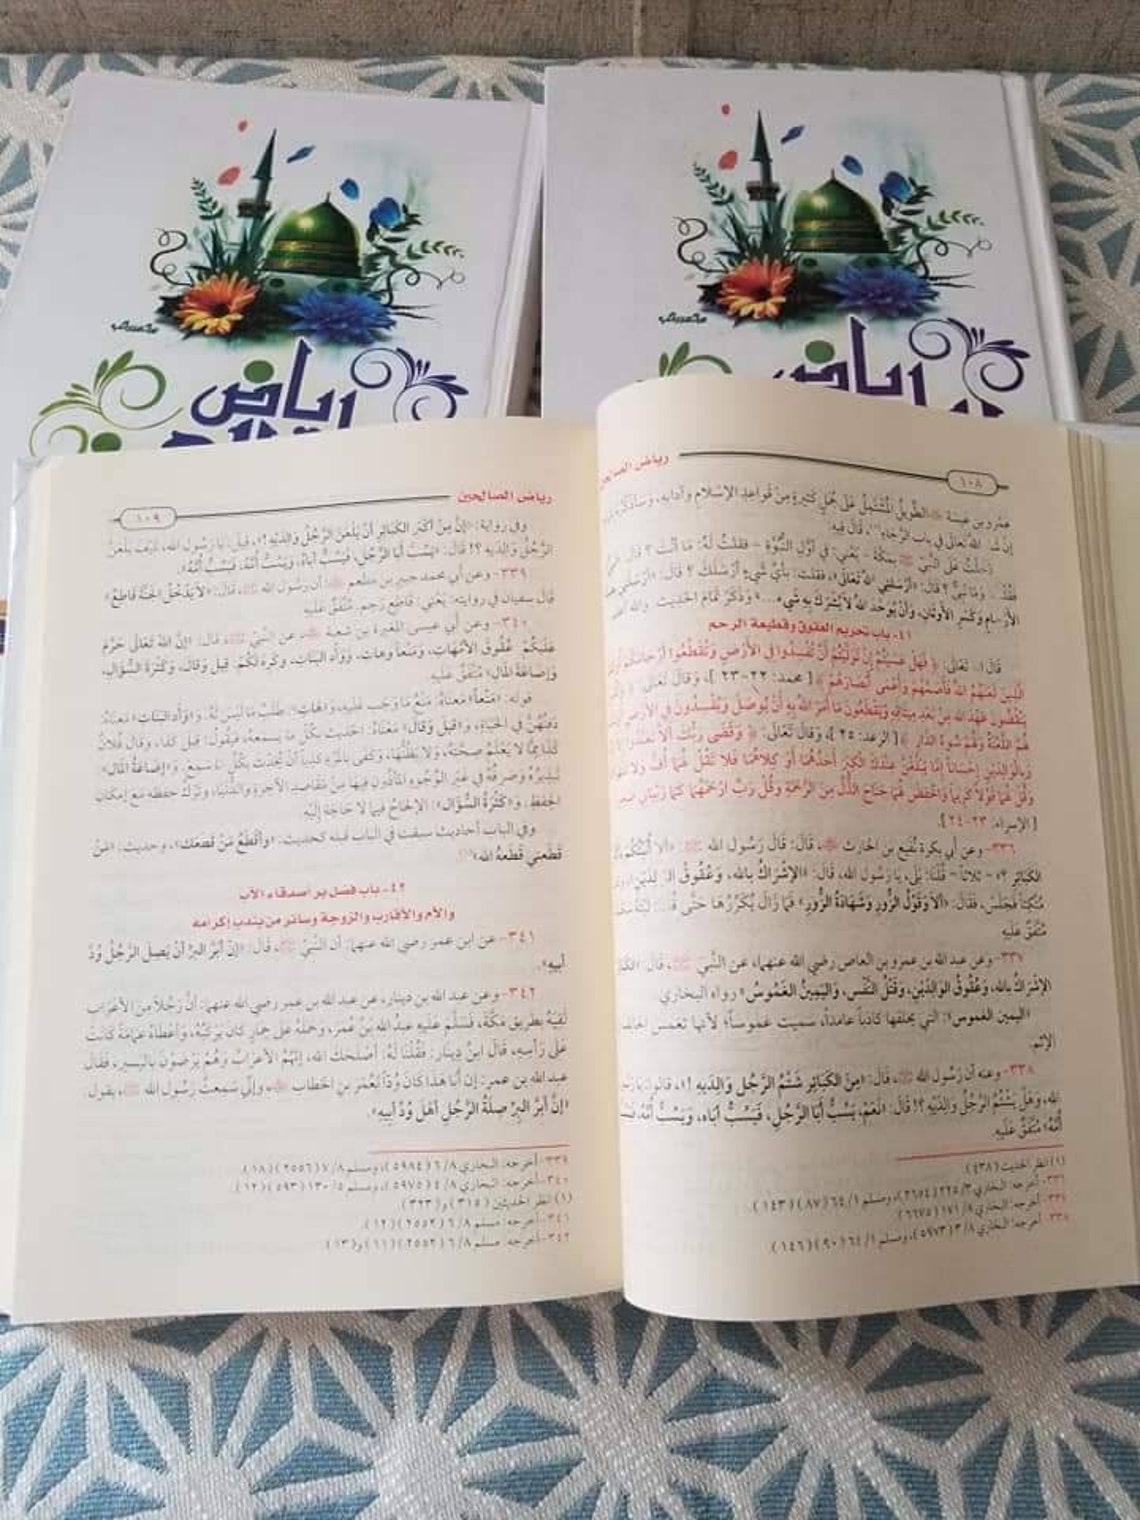 رياض
رياض
رياض الصالحين
١٠٨
عمرو بن عبسة الطويل المشتمل على جمل كثيرة من قواعد الإسلام وآدابه، وسأذكره
الله تعالى في باب الرجاء، قال فيه:
دخلت على النبي ﷺ بمكة - يعني: في أول النبوة - فقلت له: ما أنت؟ قال:
وما نبي؟ قال: «أرسلني الله تعالى»، فقلت: بأي شيء أرسلك؟ قال: «أرسلني
وكسر الأوثان، وأن يوحد الله لا يشرك به شيء...» وذكر تمام الحديث. والله أعلم
٤١- باب تحريم العقوق وقطيعة الرحم
قال تعالى: ﴿ فَهَلْ عَسَيْتُمْ إِنْ تَوَلَّيْتُمْ أَنْ تُفْسِدُوا فِي الْأَرْضِ وَتُقَطِّعُوا أَرْحَامَكُمْ
الَّذِينَ لَعَنَهُمُ اللهُ فَأَصَمَّهُمْ وَأَعْمَى أَبْصَارَهُمْ ﴾ [ محمد: ٢٢-٢٣ ]، وقال تعالى: ﴿
يَنْقُضُونَ عَهْدَ اللهِ مِنْ بَعْدِ مِيثَاقِهِ وَيَقْطَعُونَ مَا أَمَرَ اللهُ بِهِ أَنْ يُوصَلَ وَيُفْسِدُونَ فِي الْأَرْضِ
لَهُمُ اللَّعْنَةُ وَلَهُمْ سُوءُ الدَّارِ ﴾ [ الرعد: ٢٥ ]، وقال تعالى: ﴿ وَقَضَى رَبُّكَ أَلَّا تَعْبُدُوا
وَبِالْوَالِدَيْنِ إِحْسَاناً إِمَّا يَبْلُغَنَّ عِنْدَكَ الْكِبَرَ أَحَدُهُمَا أَوْ كِلَاهُمَا فَلَا تَقُلْ لَهُمَا أُفٍّ وَلَا
وَقُلْ لَهُمَا قَوْلاً كَرِيماً وَاخْفِضْ لَهُمَا جَنَاحَ الذُّلِّ مِنَ الرَّحْمَةِ وَقُلْ رَبِّ ارْحَمْهُمَا كَمَا رَبَّيَانِي
[ الإسراء: ٢٣-٢٤ ].
٣٣٦- وعن أبي بكرة نُفَيع بن الحارث ﷺ، قال: قَالَ رَسُولُ الله ﷺ: «ألا أُنَبِّئُكُمْ
الكَبَائِرِ؟» - ثلاثاً - قُلْنَا: بَلَى، يَا رَسُول الله، قَالَ: «الإشْرَاكُ بالله، وَعُقُوقُ الوَالِدَيْنِ»،
مُتَّكِئاً فَجَلَسَ، فَقَالَ: «ألاَ وَقَوْلُ الزُّورِ وَشَهَادَةُ الزُّورِ» فَمَا زَالَ يُكَرِّرُهَا حَتَّى
مُتَّفَقٌ عَلَيهِ
٣٣٧- وعن عبد الله بن عمرو بن العاص رضي الله عنهما، عن النَّبيِّ ﷺ، قَالَ:
الإشْرَاكُ بالله، وَعُقُوقُ الوَالِدَيْنِ، وَقَتْلُ النَّفْس، وَاليَمِينُ الغَمُوسُ» رواه البخاري.
«اليمين الغموس»: التي يحلفها كاذباً عامداً، سميت غموساً؛ لأنها تغمس
الإثم.
٣٣٨- وعنه أن رَسُول الله ﷺ، قَالَ: «مِنَ الكَبَائِر شَتْمُ الرَّجُل وَالِدَيهِ!»، قالوا: يَا
الله، وَهَلْ يَشْتُمُ الرَّجُلُ وَالِدَيْهِ؟! قَالَ: «نَعَمْ، يَسُبُّ أَبَا الرَّجُلِ، فَيَسُبُّ أباه، وَيَسُبُّ أُمَّهُ، فَيَسُبُّ
أُمَّهُ» مُتَّفَقٌ عَلَيهِ
(١) انظر الحديث (٤٣٨)
٣٣٦- أخرجه: البخاري ٣/ ٢٢٥ (٢٦٥٤)، ومسلم ١/ ٦٤ (٨٧) (١٤٣).
أخرجه: البخاري ٨/ ١٧١ (٦٦٧٥)
٣٣٨- أخرجه: البخاري ٨/ ٣ (٥٩٧٣)، ومسلم ١/ ٦٤ (٩٠) (١٤٦)
رياض الصالحين
١٠٩
وفي رواية: «إنَّ مِنْ أكْبَرِ الكَبَائِرِ أنْ يَلْعَنَ الرَّجُلُ وَالِدَيْهِ!»، قيل: يَا رَسُول الله، كَيْفَ يَلْعَنُ
الرَّجُلُ وَالِدَيهِ؟! قَالَ: «يَسُبُّ أَبَا الرَّجُلِ، فَيَسُبُّ أبَاهُ، وَيَسُبُّ أُمَّهُ، فَيَسُبُّ أُمَّهُ».
٣٣٩- وعن أبي محمد جبير بن مطعم ﷺ: أن رسول الله ﷺ، قَالَ: «لاَ يَدْخُلُ الجَنَّةَ قَاطِعٌ»
قَالَ سفيان في روايته: يَعْنِي: قَاطِع رَحِم. مُتَّفَقٌ عَلَيهِ
٣٤٠- وعن أبي عيسى المغيرة بن شعبة ﷺ، عن النَّبيّ ﷺ، قَالَ: «إنَّ اللهَ تَعَالَى حَرَّمَ
عَلَيْكُمْ: عُقُوقَ الأُمَّهَاتِ، وَمَنْعاً وهاتِ، وَوَأْد البَنَاتِ، وكَرِهَ لَكُمْ: قِيلَ وَقالَ، وَكَثْرَةَ السُّؤَالِ،
وَإضَاعَةَ المَالِ» مُتَّفَقٌ عَلَيهِ
قوله: «مَنْعاً» مَعنَاهُ: مَنْعُ مَا وَجَب عَلَيهِ، وَ«هَاتِ»: طَلَبُ مَا لَيْسَ لَهُ. وَ«وَأْد البَنَاتِ» مَعنَاهُ:
دَفنُهُنَّ في الحَيَاةِ، وَ«قيلَ وَقَالَ» مَعْنَاهُ: الحَديث بكُلّ مَا يَسمَعهُ، فيَقُولُ: قِيلَ كَذَا، وقَالَ فُلانٌ
كَذَا مِمَّا لا يَعْلَمُ صِحَّتَهُ، وَلا يَظُنُّهَا، وَكَفَى بالمَرْءِ كذِباً أنْ يُحَدّثَ بكُلِّ مَا سَمِعَ. وَ«إضَاعَةُ المَال»:
تَبذِيرُهُ وَصَرفُهُ في غَيْرِ الوُجُوهِ المأذُونِ فِيهَا مِنْ مَقَاصِدِ الآخِرةِ وَالدُّنْيَا، وتَرْكُ حِفظِهِ مَعَ إمكَانِ
الحِفظِ. وَ«كَثْرَةُ السُّؤَال»: الإلحَاحُ فيما لا حَاجَة إلَيْهِ.
وفي الباب أحاديث سبقت في الباب قبله كحديث: «وأقْطَعُ مَنْ قَطَعَك»، وحديث: «مَنْ
قَطَعَني قَطَعَهُ الله»(١).
٤٢- باب فضل بر أصدقاء الأب
والأم والأقارب والزوجة وسائر من يندب إكرامه
٣٤١- عن ابن عمر رضي الله عنهما: أن النَّبيّ ﷺ، قَالَ: «إنّ أبَرَّ البرِّ أنْ يَصِلَ الرَّجُلُ وُدَّ
أبيهِ».
٣٤٢- وعن عبد الله بن دينار، عن عبد الله بن عمر رضي الله عنهما: أنَّ رَجُلاً مِنَ الأعْرَابِ
لَقِيَهُ بطَريق مَكَّةَ، فَسَلَّمَ عَلَيهِ عبدُ الله بْنُ عُمَرَ، وَحَمَلَهُ عَلَى حِمَارٍ كَانَ يَرْكَبُهُ، وَأعْطَاهُ عِمَامَةً كَانَتْ
عَلَى رَأسِهِ، قَالَ ابنُ دِينَار: فَقُلْنَا لَهُ: أصْلَحَكَ الله، إنَّهُمُ الأعرَابُ وَهُمْ يَرْضَوْنَ باليَسير، فَقَالَ
عبد الله بن عمر: إن أَبَا هَذَا كَانَ وُدّاً لِعُمَرَ بنِ الخطاب ﷺ، وإنِّي سَمِعتُ رَسُول الله ﷺ، يقول:
«إنَّ أبرَّ البِرِّ صِلَةُ الرَّجُلِ أهْلَ وُدِّ أبِيهِ».
٣٣٩- أخرجه: البخاري ٨/ ٦ (٥٩٨٤)، ومسلم ٨/ ٧ (٢٥٥٦) (١٨).
٣٤٠- أخرجه: البخاري ٨/ ٤ (٥٩٧٥)، ومسلم ٥/ ١٣٠ (٥٩٣) (١٢).
(١) انظر الحديثين (٣١٥) و(٣٢٣)
٣٤١- أخرجه: مسلم ٨/ ٦ (٢٥٥٢) (١٢).
٣٤٢- أخرجه: مسلم ٨/ ٦ (٢٥٥٢) (١١) و(١٣)